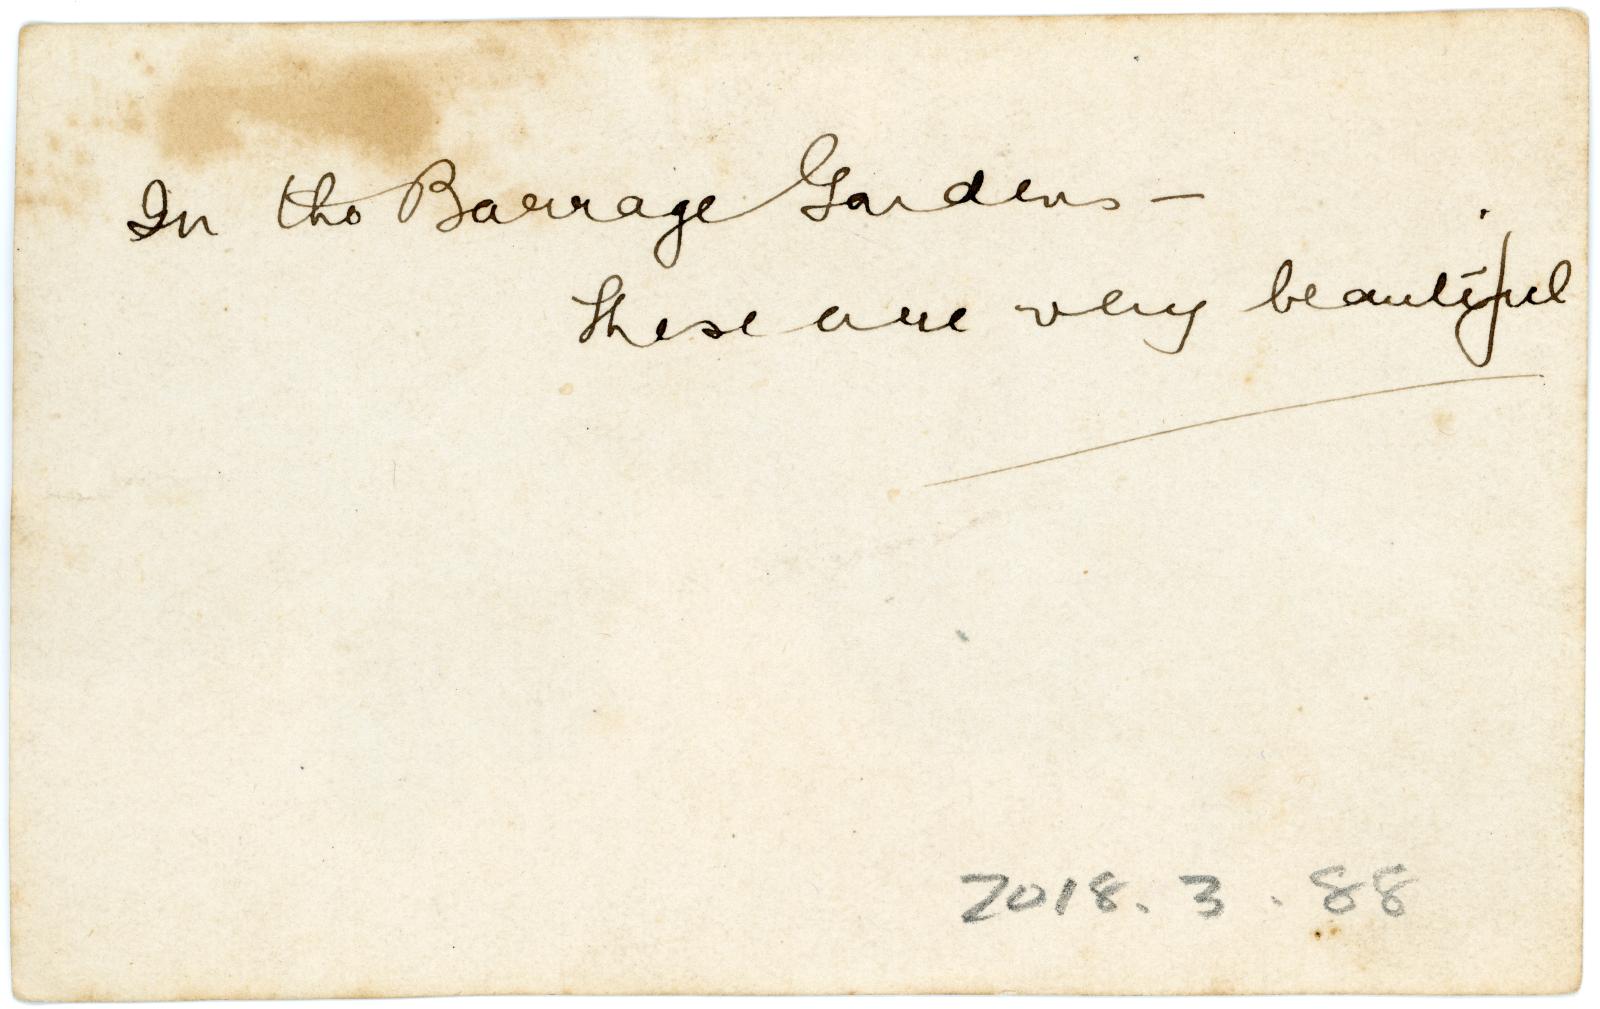 In the Barrage Gardens —
These are very beautiful
2018.3.88